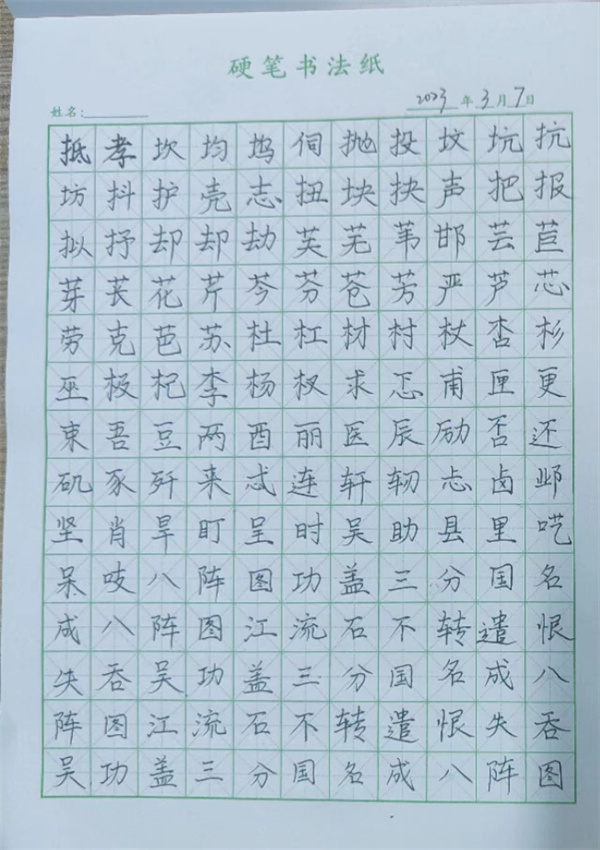 硬笔书法纸
姓名: 2023年3月7日
抵孝坎均坞伺抛投坟坑抗
坊抖护壳志扭块抉声把报
拟抒却却劫芙芜苇邯芸苣
芽苌花芹芩芬苍芳严芦芯
劳克芭苏杜杠材村杖杏杉
巫极杞李杨杈求忑甫匣更
束吾豆两酉丽医辰励否还
矶豕歼来忒连轩轫忐卤邺
坚肖旱盯呈时吴助县里呓
呆吱八阵图功盖三分国名
成八阵图江流石不转遣恨
失吞吴功盖三分国名成八
阵图江流石不转遣恨失吞
吴功盖三分国名成八阵图